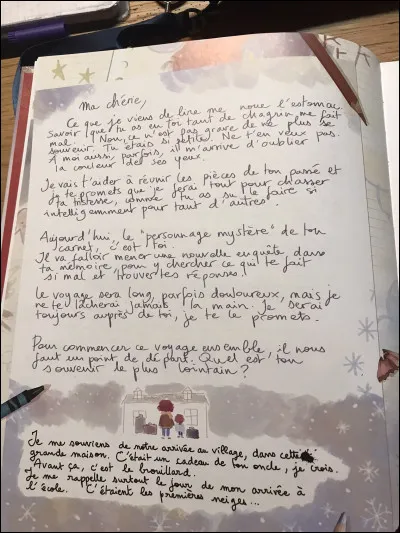 Ma chérie,
Ce que je viens de lire me noue l'estomac.
Savoir que tu as eu tant de chagrin me fait
mal. Non, ce n'est pas grave de ne plus se
souvenir. Tu étais si petite. Ne t'en veux pas.
A moi aussi, parfois, il m'arrive d'oublier
la couleur des ses yeux.
Je vais t'aider à réunir les pièces de ton passé et
je te promets que je ferai tout pour chasser
ta tristesse, comme tu as su le faire si
intelligemment pour tant d'autres.
Aujourd'hui, le "personnage mystère" de ton
carnet, c'est toi.
Il va falloir mener une nouvelle enquête dans
ta mémoire, pour y chercher ce qui te fait
si mal et trouver tes réponses.
Le voyage sera long, parfois douloureux, mais je
ne te lâcherai jamais la main. Je serai
toujours auprès de toi, je te le promets.
Pour commencer ce voyage ensemble, il nous
faut un point de départ. Quel est ton
souvenir le plus lointain?
Je me souviens de notre arrivée au village, dans cette
grande maison. C'était un cadeau de ton oncle, je crois.
Avant ça, c'est le brouillard.
Je me rappelle surtout le jour de mon arrivée à
l'école. C'étaient les premières neiges...